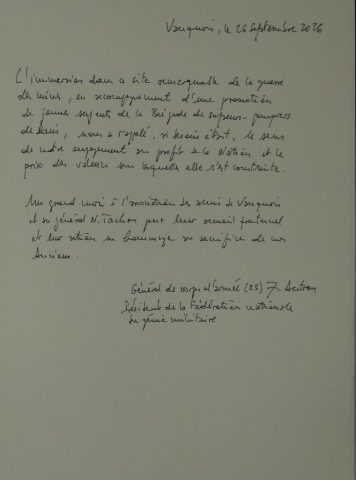 Vauquois, le 26 Septembre 2026
L'immersion dans ce site remarquable de la guerre
des mines, en accompagnement d'une promotion
de jeunes sergents de la Brigade de sapeurs-pompiers
de Paris, nous a rappelé, si besoin était, le sens
de notre engagement au profit de la Nation et le
prix des valeurs sur lesquelles elle s'est construite.
Un grand merci à l'association des amis de Vauquois
et au général N. Tachon pour leur accueil fraternel
et leur action en hommage au sacrifice de nos
Anciens.
Général de corps d'armée (2S) F.
Président de la Fédération nationale
du génie militaire